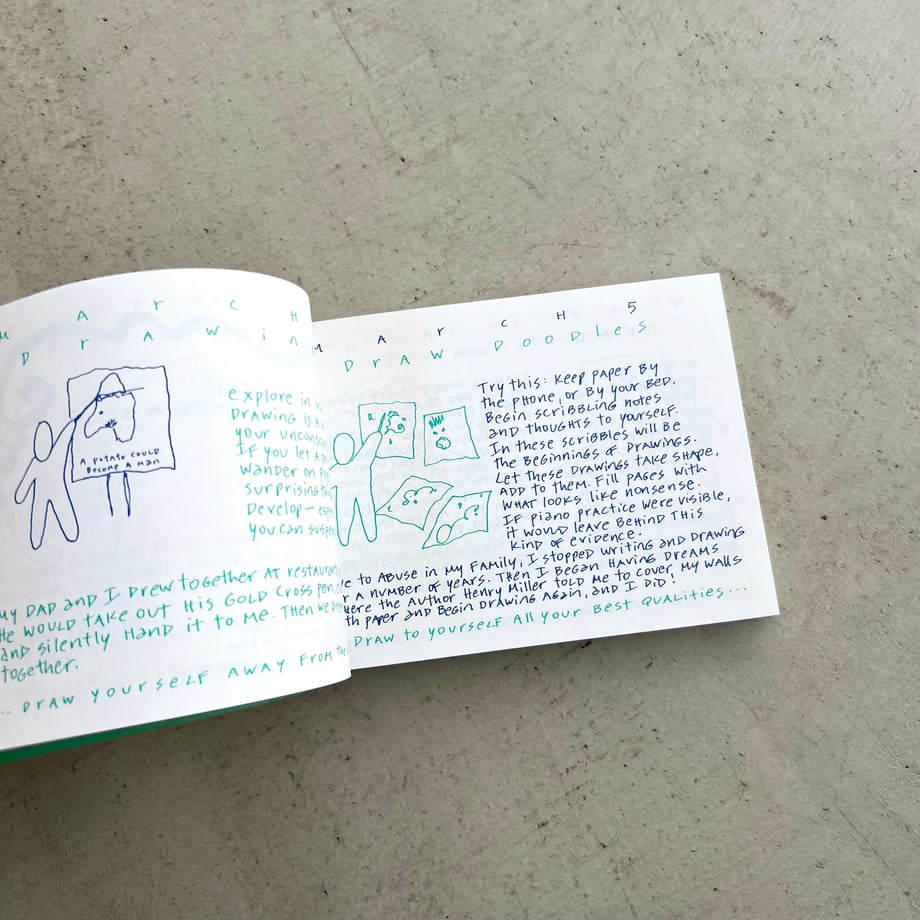 M A r C H
D r A W i n
A Potato could
Become A Man
explore in in
Drawing is A
your unconsc
IF you let A
wander on
surprising
Develop—
you can
My DAD and I Drew together AT restauran
He would take out His Gold Cross pen
and silently Hand it to Me. Then we
together.
... Draw yourself away from the
M A r C H 5
D r A W D O O D L e S
Try this: Keep paper By
the phone, or By your Bed.
Begin scribbling notes
and thoughts to yourself.
In these scribbles will be
the Beginnings of Drawings.
Let these drawings take shape,
ADD to them. Fill pages with
what looks like nonsense.
IF piano practice were visible,
it would leave Behind this
kind of evidence.
e to Abuse in My Family, I stopped writing and Drawing
r A number of years. Then I Began Having Dreams
ere the Author Henry Miller told Me to cover My walls
th paper and Begin Drawing Again, and I Did!
Draw to yourself All your Best Qualities...